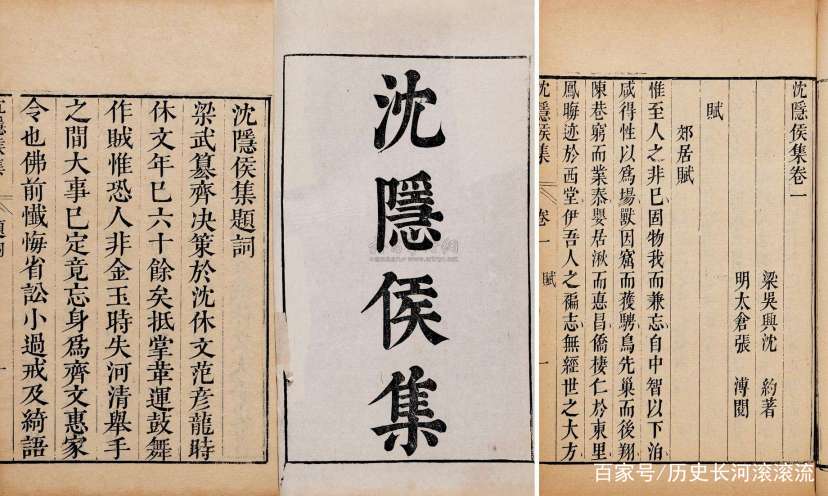 沈隱侯集題詞
梁武簒齊决策於沈休文范彦龍時
休文年已六十餘矣抵掌革運鼓舞
作賊惟恐人非金玉時失河清舉手
之間大事已定竟忘身爲齊文惠家
令也佛前懺悔省訟小過戒及綺語
沈隱侯集
沈隱侯集卷一
梁吳興沈 約著
明太倉張 溥閱
賦
郊居賦
惟至人之非已固物我而兼忘自中智以下洎
咸得性以爲場獸因窟而獲騁鳥先巢而後翔
陳巷窮而業泰嬰居湫而德昌僑棲仁於東里
鳳晦迹於西堂伊吾人之褊志無經世之大方
沈隱侯集 卷一 賦 一
百家号/历史长河滚滚流